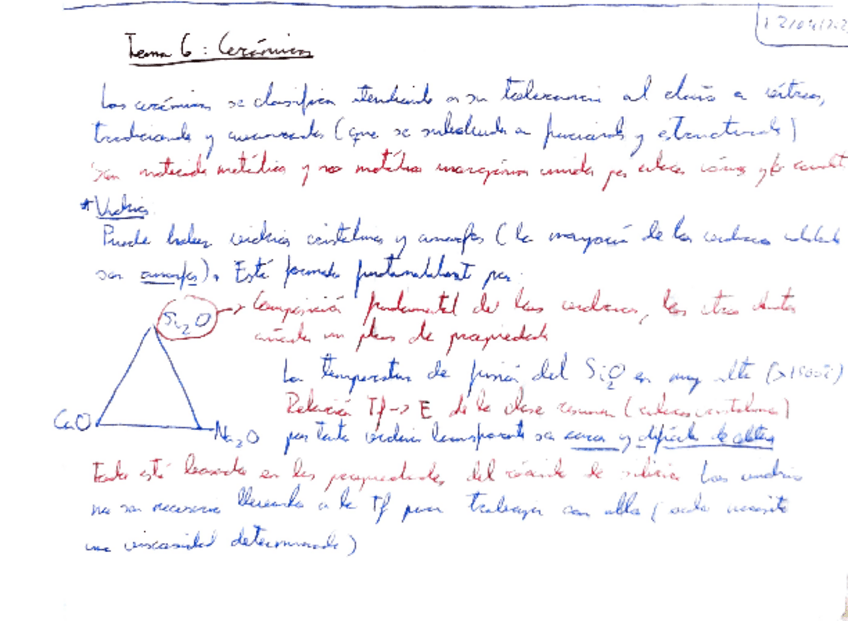 Tema 6: Cerámicas
Las cerámicas se clasifican atendiendo a su tolerancia al daño a vítreas,
tradicionales y avanzadas (que se subdividen en funcionales y estructurales)
Son materiales metálicos y no metálicos inorgánicos unidos por enlaces iónicos y/o covalent
*Vidrios.
Puede haber vidrios cristalinos y amorfos (la mayoría de los
son amorfos). Está formado fundamentalment por:
Si2O → Composición fundamental de los, los otros
añade un plus de propiedades
La temperatura de fusión del Si2O es muy alta (>1800
Relación Tf → E de la clase resumen (enlaces cristalinos)
CaO Na2O por tanto vidrios transparentes son caros y difíciles de obtener
Todo está basado en las propiedades del óxido de silicio Los vidrios
no es necesario llevarlos a la Tf para trabajar con ellos (solo necesito
una viscosidad determinada)